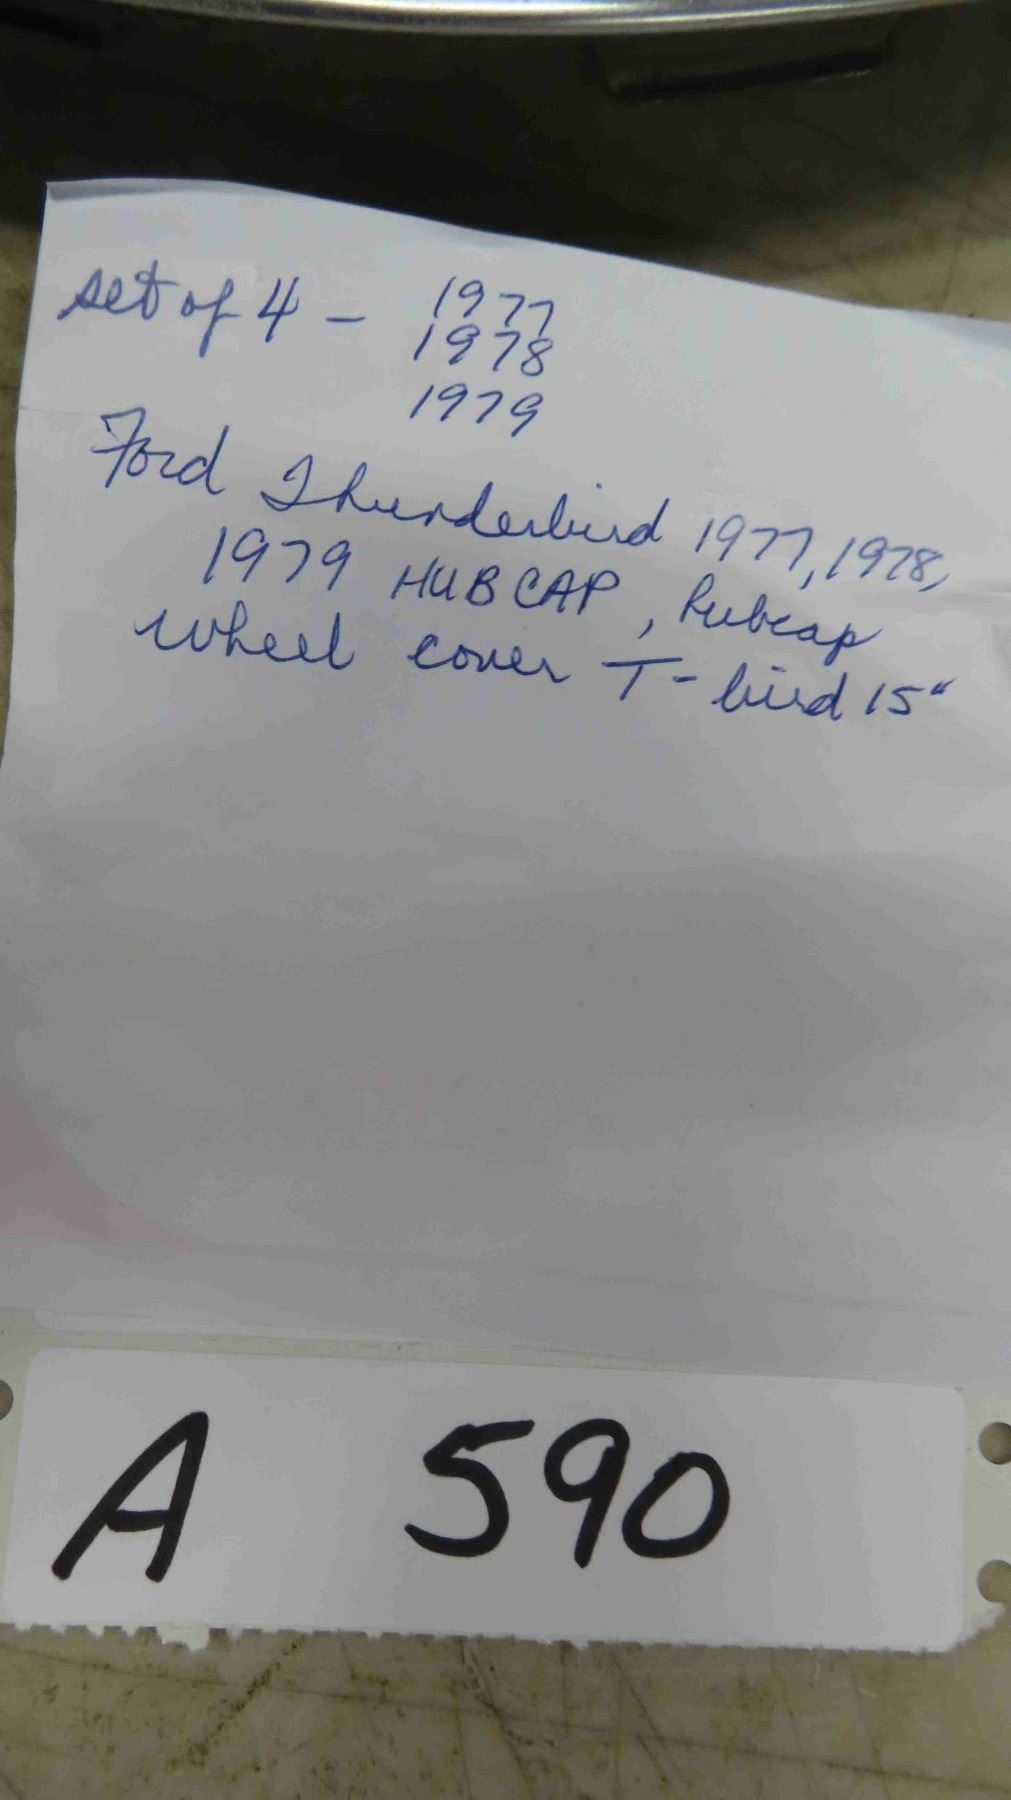 set of 4 - 1977
1978
1979
Ford Thunderbird 1977, 1978,
1979 HUBCAP, hubcap
wheel cover T-bird 15"
A 590